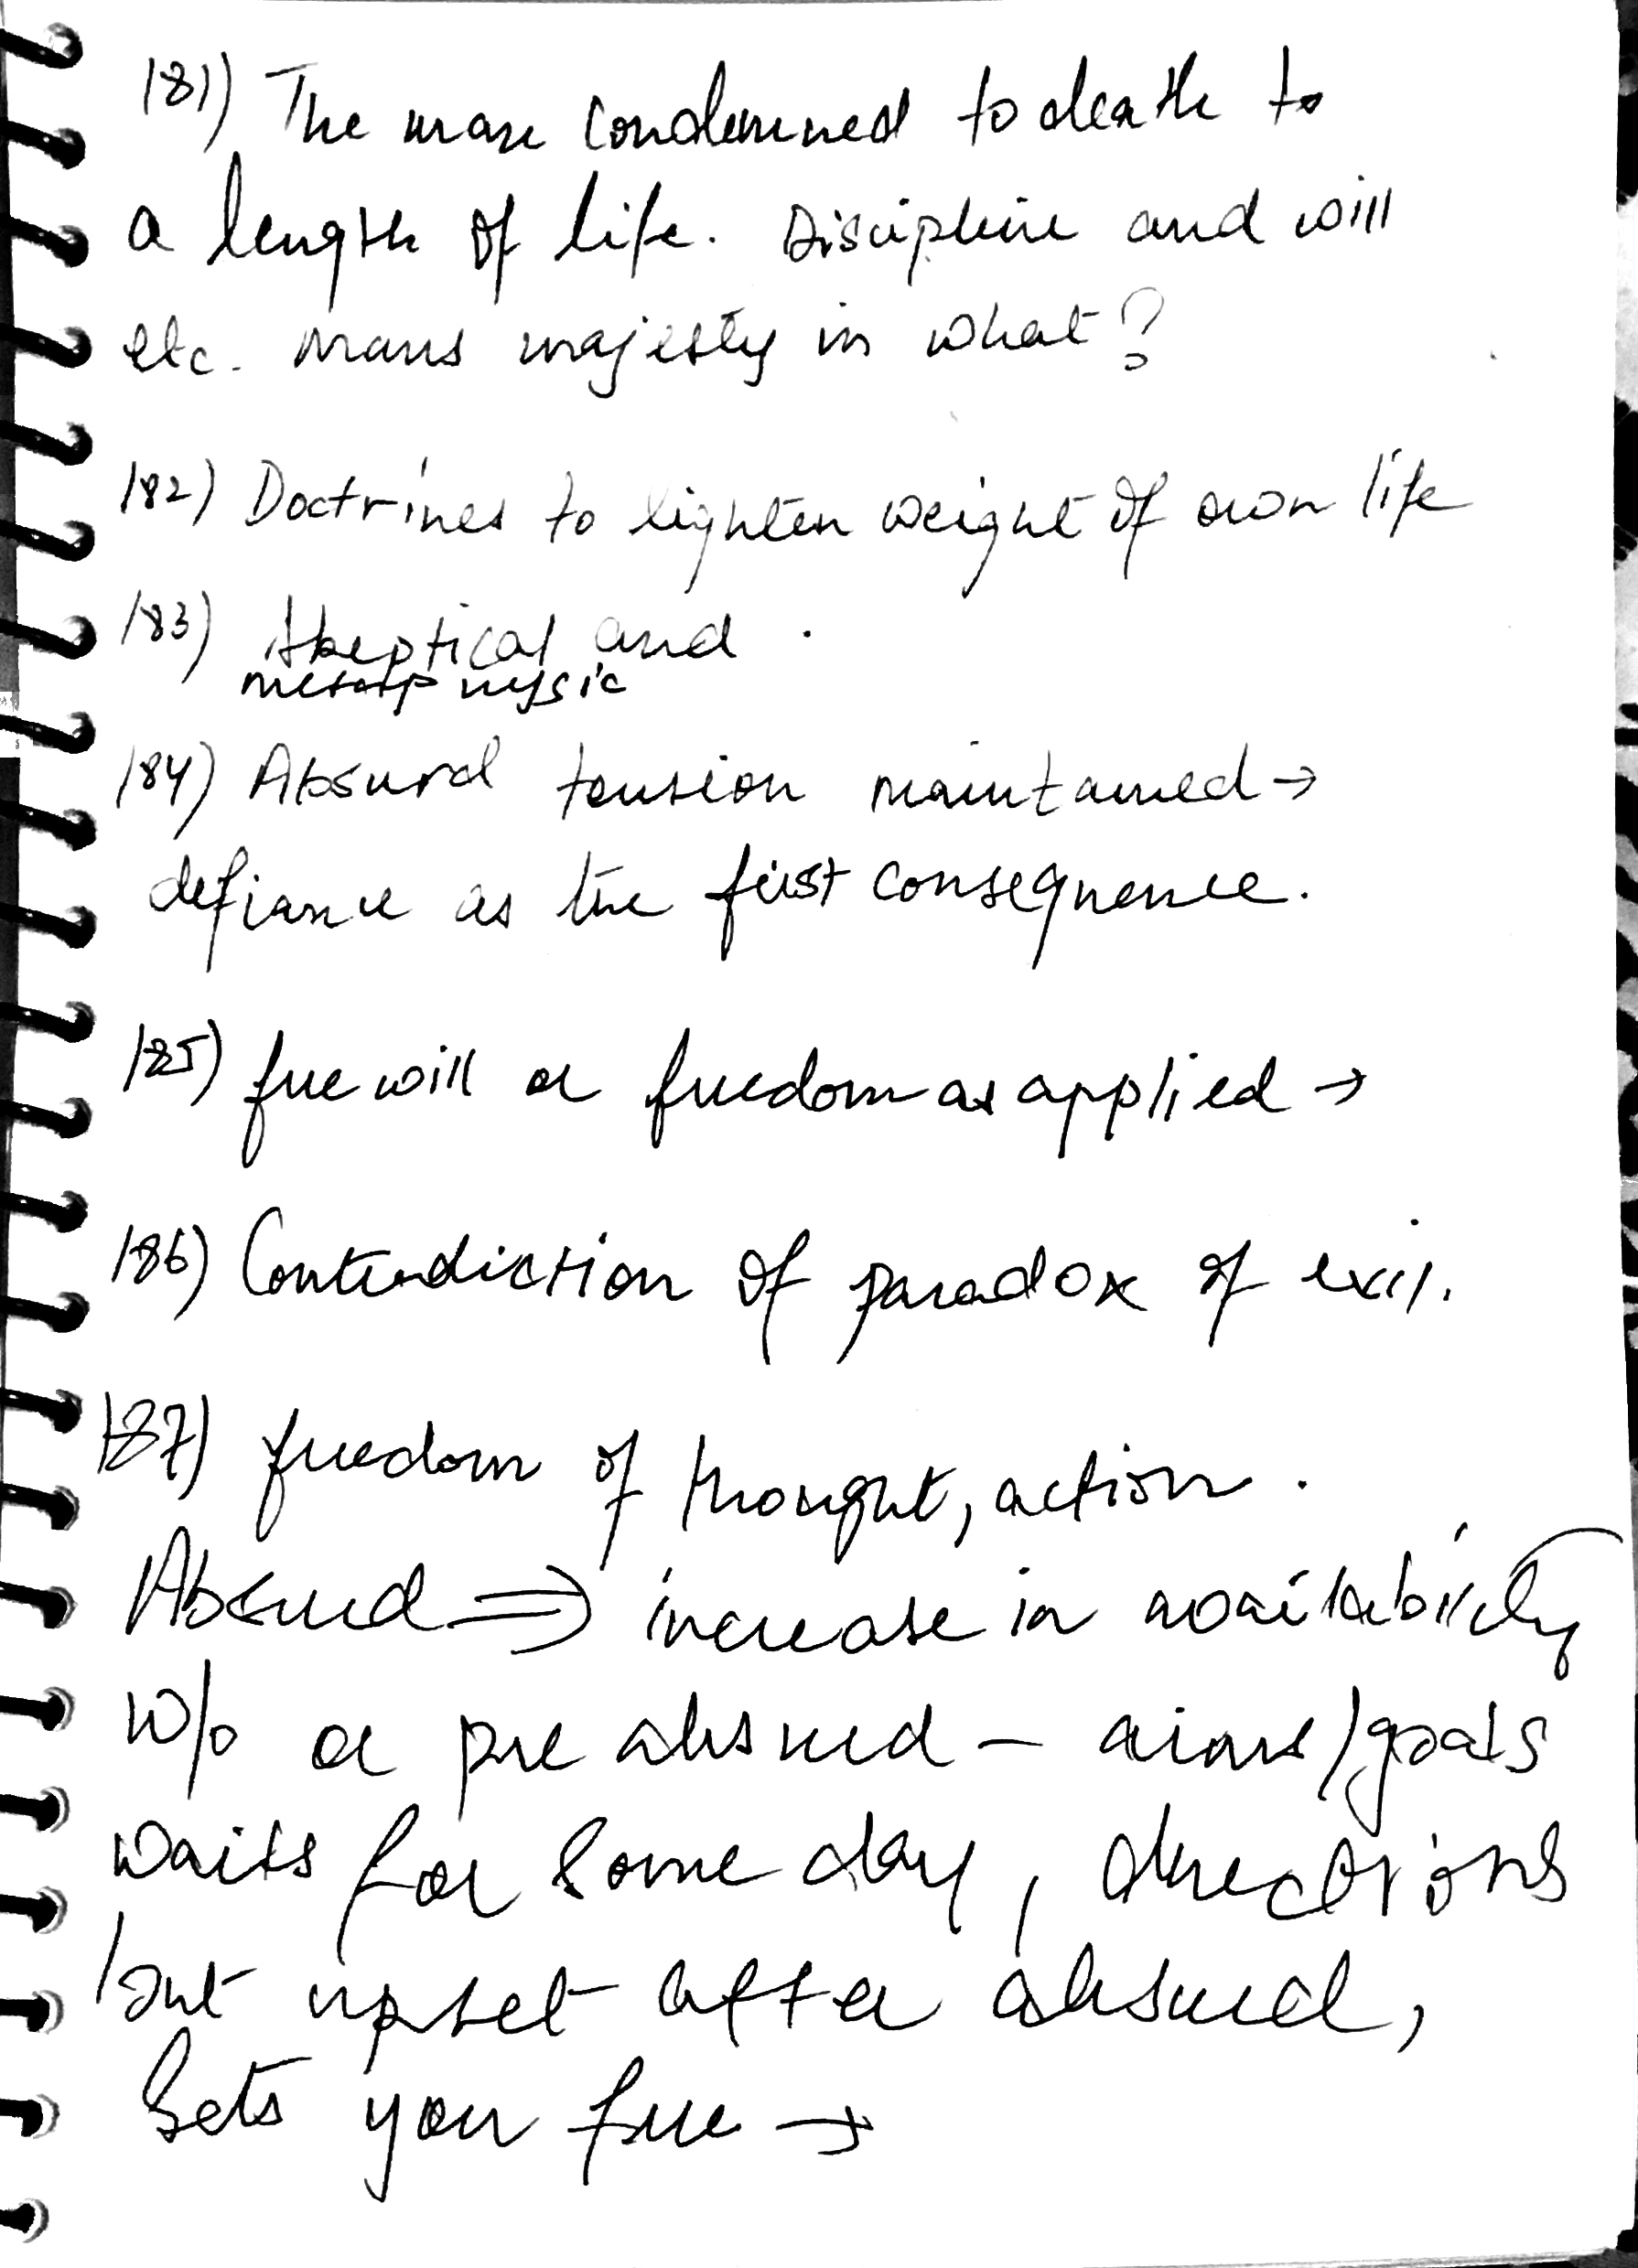 181) The man condemned to death to
a length of life. Discipline and will
etc. mans majesty in what?
182) Doctrines to lighten weight of own life
183) Skeptical and
metaphysic
184) Absurd tension maintained →
defiance as the first consequence.
185) free will or freedom as applied →
186) Contradiction of paradox of exis.
187) freedom of thought, action.
Absurd ⇒ increase in availability
w/o or pre absurd - aims/goals
waits for some day, directions
but upset after absurd,
Sets you free →